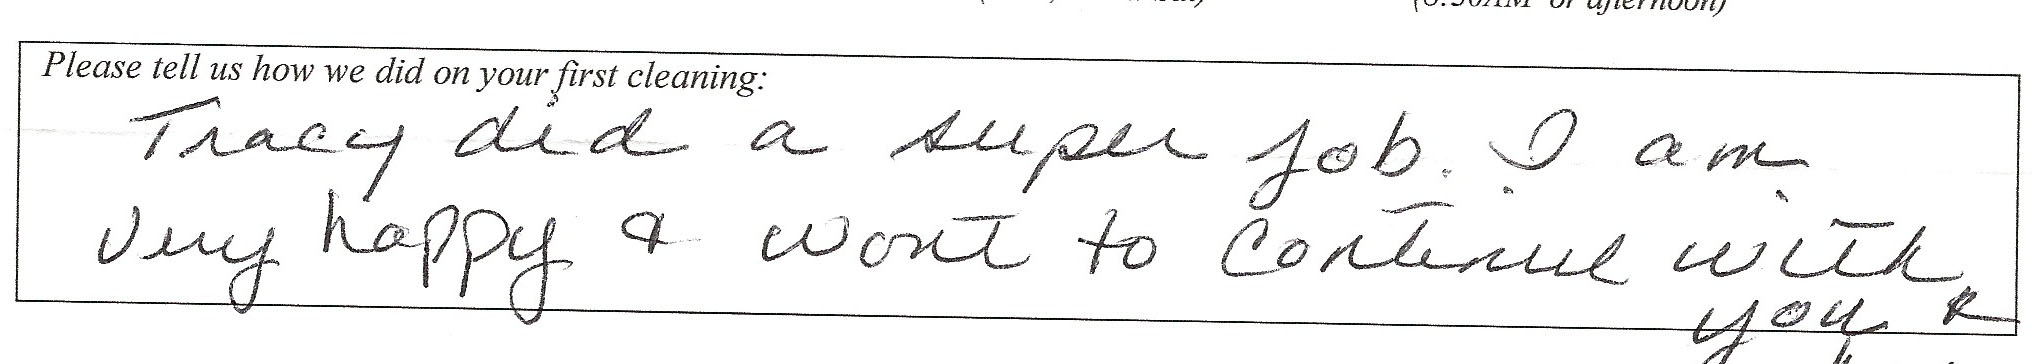 (8:30AM or afternoon)
Please tell us how we did on your first cleaning:
Tracy did a super job. I am
very happy & want to continue with
you &